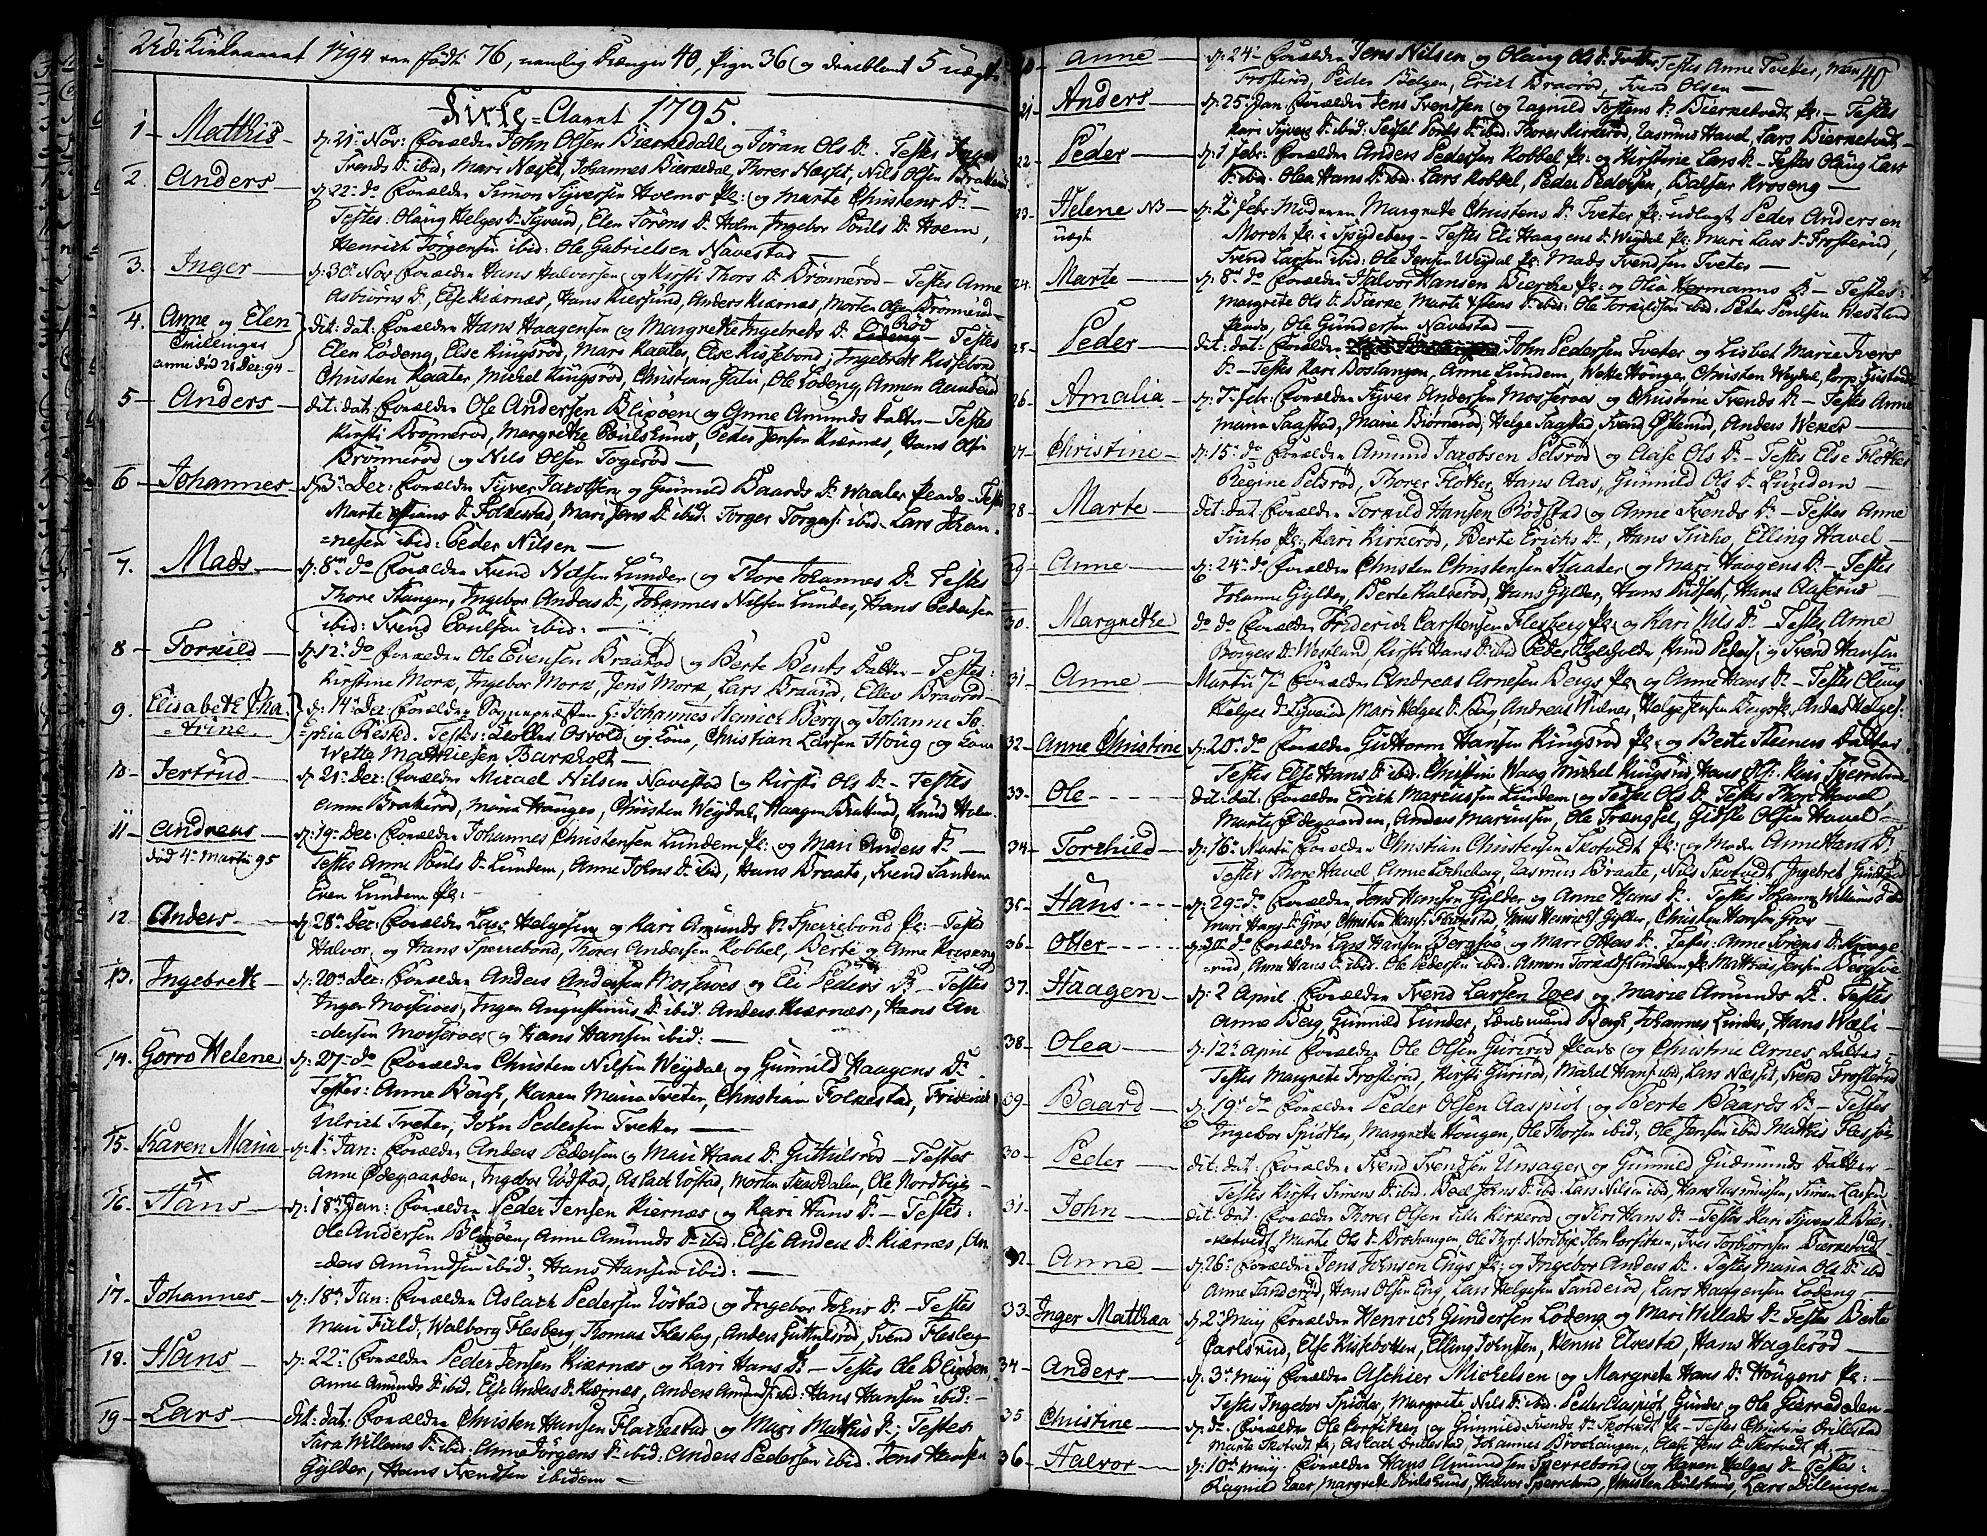 1794 var født 76, nemlig Drenger 40, piger 36 og deriblant 5 uægte
Kirke-Aaret 1795.
1 - Matthis d: 21 Nov: Forældre John Olsen Bierkedahl og Jøran Ols D. Testes Inger
Svends D. ibid, Mari Næset, Johannes Bierkedal, Thorer Næset, Nils Olsen
2. Anders d: 22 do Forældre Simon Syversen Hoems pl: og Marte Christens D. -
Testes: Olaug Helges D. Syverud, Elen Sørens D. Holm Ingebor Pouls D. Hoem,
Henrich Jørgensen ibid: Ole Gabrielsen Navestad
3. Inger d: 30 Nov Forældre Hans Halvorsen og Kirsti Thors D. Brønnerød - Testes Anne
Asbiørns D., Else Kiærnæs, Hans Kiersund, Anders Kiærnæs, Morten Olsen Brønnerød
4. Anne og Elen Tvillinger dit: dat: Forældre Hans Haagensen og Margrethe Ingebrets D. Testes
anne død 21 Dec: 94
Elen Lødeng, Else Ringsrød, Mari Kaater, Else Kissebond, Ingebret Kissebond
Christen Kaater, Michel Ringsrød, Christian, Ole Lødeng, Amun
5 - Anders dit: dat: Forældre Ole Andersen Blixøen og Anne Amunds Datter - Testes
Kirsti Brønnerød, Margrethe Poulslund, Peder Jensen Kiærnæs, Hans Olsen
Brønnerød og Nils Olsen Togerød -
6 - Johannes d: 3 Dec: Forældre Syver Jacobsen og Gunnild Baards D. Waaler plads - Testes
Marte D. Folkestad, Mari Jens D. ibid: Torger Torgers: ibid. Lars Johan-
=nesen ibid: Peder Nilsen -
7. Mads d: 8 do Forældre Svend Nilsen Lunder og Thore Johannes D. Testes
Thore Stangen, Ingebor Anders D., Johannes Nilsen Lundes, Hans Pedersen
ibid: Svend Poulsen ibid: -
8 - Torkild d: 12 do Forældre Ole Evensen Braarød og Berte Bents Datter - Testes:
Kirstine Morx, Ingebor Morx, Jens Morx, Lars Braarød, Ellev Braarød
9. Elisabeth Cha= =trine d: 14 Dec: Forældre Sognepræsten Hr. Johannes Henrich Berg og Johanne So=
=phia Rested. Testes: Osvold og Kone, Christian Larsen Houg og Kone
Wette Mathiesen Barkholt -
10 - Jertrud d: 21 Dec: Forældre Micael Nilsen Navestad og Kirsti Ols D. - Testes
Anne Brakerød, Maria Houges, Christen Weydal, Haagen Brakerød, Knud Holm
11 - Andreas d: 19 Dec: Forældre Johannes Christensen Lundem pl: og Mari Anders D. -
død 4 Martii 95
Testes Anne Pouls D. Lundem, Anne Johns D. ibid, Hans Braate, Svend Sandem
Even Lundem pl:
12 - Anders d: 28 Dec Forældre Lars Helgesen og Kari Amunds D. Sperrebond pl: Testes
Halvor og Hans Sperrebond, Thorer Andersen Kobbel, Berte og Anne Kroseng
13. Ingebreth d: 20 Dec: Forældre Anders Andersen Mosseroes og Eli Peders D. - Testes
Inger Mosseroes, Inger Augustinus D. ibid. Anders Kiærnæs, Hans An
=dersen Mosseroes og Hans Hansen ibid: -
14. Gorro Helene d: 27 do Forældre Christen Nilsen Weydal og Gunnild Haagens D.
Testes: Anne Bergh, Karen Maria Tveter, Christian Folkestad, Friderich
Ulrich Tveter, John Pedersen Tveter -
15. Karen Maria d: 1 Jan: Forældre Anders Pedersen og Mari Hans D. Guttulsrød - Testes
Anne Ødegaarden, Ingebor Vøstad, Aslach Vøstad, Morten, Ole Nordbye -
16. Hans d: 18 Jan: Forældre Peder Jensen Kiernæs og Kari Hans D. - Testes:
Ole Andersen Blixøen, Anne Amunds D. ibid. Else Anders D. Kiærnæs, An
=ders Amundsen ibid, Hans Hansen ibid: -
17. Johannes d: 18 Jan: Forældre Aslach Pedersen Vøstad og Ingebor Johns D. - Testes
Mari Field, Walborg Flesberg, Thomas Flesberg, Anders Guttulsrød, Svend Flesberg
18. Hans d: 22 Forældre Peder Jensen Kiærnæs og Kari Hans D. - Testes Ole Blixøen
Anne Amunds D. ibid. Else Anders D. Kiærnæs, Anders Amunds: ibid: Hans Hansen ibid: -
19 - Lars dit: dat: Forældre Christen Hansen Flackestad og Mari Mathis D; Testes
Sara Willums D. ibid: Anne Jørgens D. ibid. Anders Pedersen ibid. Jens Hansen
Gylder, Hans Svendsen ibidem -
40
Anne d: 24 Forældre Jens Nilsen og Olaug Ols D. Tveter, Testes Anne Tveter,
Frosterød, Peder Bølgen, Erich Braarød, Svend Olsen -
21 - Anders d: 25 Jan. Forældre Jens Svendsen og Ragnild Tostens D. Bierketvedt pl: - Testes
Kari Syvers D. ibid: D. ibid: Thorer Kirkerød, Rasmus Havel, Lars Bierketvedt -
22 - Peder d: 1 Febr: Forældre Anders Pedersen Kobbel pl: og Kirstine Lars D. - Testes Olaug Lars
D. ibid. Olea Hans D. ibid. Lars Kobbel, Peder Pedersen, Halfar Kroseng -
23 - Helene NB uægt d: 2 Febr: Moderen Margrete Christens D. Tveter pl: udlagt Peder Andersen
Morch pl: i Spydeberg - Testes Eli Haagens D. Weydal pl: Mari Lars D. Frosterud,
Svend Larsen ibid: Ole Jensen Weydal pl: Mads Svendsen Tveter -
24. Marte d: 8 do Forældre Halvor Hansen Bierche pl: og Olia Hermanns D - Testes:
Margrete Ols D. Berke Marte D. ibid: Ole Torkildsen ibid: Peter Poulsen Westlund
plads, Ole Gundersen Navestad -
25 - Peder dit: dat: Forældre John Pedersen Tveter og Lisbet Marie Ivers
D. - Testes Kari Bostangen, Anne Lundem, Wette Houger, Christen Weydal, Corp:
26 - Amalia d: 7 Febr: Forældre Syver Andersen Mosseroes og Christine Svends D. - Testes Anne
Maria Saastad, Marie Biørnerød, Helge Saastad Svend Østerud, Anders Weker -
27 - Christine d: 15 do Forældre Amund Jacobsen Pelsrød og Aase Ols D. - Testes Else Fløtker
Regine Pelsrød, Thorer Fløtker, Hans Aas, Gunnild Ols D. Lundem -
28 - Marte dit: dat: Forældre Torkild Hansen Bødstad og Anne Svends D. - Testes Anne
pl:, Kari Kirkerød, Berte Erichs D., Hans, Elling Havel -
29 - Anne d: 24 do Forældre Christen Christensen Kaater og Mari Haagens D. - Testes
Johanne Gylder, Berte Kalverød, Hans Gylder, Hans, Hans Aaserud -
30. Margrethe do do Forældre Friderich Carstensen Flesberg pl: og Kari Nils D. - Testes Anne
Borges D. Westlund, Kirsti Hans D. ibid Peder Gylder, Knud Peders: og Svend Hansen
31 - Anne Martii 7 Forældre Andreas Arnesen Bergs pl: og Anne Hans D. - Testes Olaug
Helges D. Syverud Mari Helges D. Berg Andreas, Helge Jensen, Anders Helges:
32 - Anne Christine d: 20 do Forældre Guthorm Hansen Ringsrød pl: og Berte Steners Datter
Testes Else Hans D. ibid. Christine Waag Michel Ringsrød, Hans Ols: Sperrebond
33 - Ole dit: dat: Forældre Erich Mariussen Lundem og Ols D. Testes Thore Havel,
Marte Ødegaarden, Anders Mariussen, Ole Trængsel, Gidsle Olsen Havel -
34 - Torchild d: 16 Martii Forældre Christian Christensen Skotvedt pl: og Moder Anne Hans D.
Testes Thore Havel, Anne, Rasmus Braate, Nils Skotvedt, Ingebret
35 - Hans d: 29 do Forældre Jens Hansen Gylder og Anne Hans D. Testes Johanne Willums D. ibid
Mari Hans D. Grav Christen Hans: Flakestad, Jens Henrichs: Gylder, Christen Hansen Grav
36 - Otter d: 30 do Forældre Lars Hansen Bergsøe og Mari Otters D. Testes. Anne Sørens D.
rud, Anne Hans D. ibid. Ole Pedersen ibid. Amon Torkilds: Lundem pl: Matthis Jensen Bergsøe
37. Haagen d: 2 April Forældre Svend Larsen Roes og Marie Amunds D. Testes
Anne Berg, Gunnild Lunder, Lensmand Bergh, Johannes Lunder, Hans Wæli -
38 - Olea d: 12 April Forældre Ole Olsen Gurerød plads og Christine Arnes Datter
Testes Margrete Frosterød, Kirsti Gurerød, Michel Hans: ibid, Lars Næset, Svend Frosterød
39 - Baard d: 19 do Forældre Peder Olsen Aaspiøt og Berte Baards D. - Testes
Ingebor Spiøtter, Margrete Hougen, Ole Thorsen ibid:, Ole Jensen ibid Mathis
30 - Peder dit: dat: Forældre Svend Svendsen Unsager og Gunnild Gudmunds Datter -
Testes Kirsti Simens D. ibid. Boel Johns D. ibid: Lars Nilsen ibid, Hans Rasmussen, Simen Larsen
31 - John dit: dat: Forældre Thorer Olsen Lille Kirkerød og Siri Hans D. - Testes Kari Syvers D. Bier-
=ketvedt, Marte Ols D. Brochangen, Ole Thors: Nordbye John Corfitsen, Iver Torbiørnsen Bierketvedt -
32 - Anne d: 26 Forældre Jens Johnsen Engs pl: og Ingebor Anders D. Testes Maria Ols D. ibid
Anne Sanderød, Hans Olsen Eng, Lars Helgesen Sanderød, Lars Haagensen Lødeng -
33 - Inger Matthea d: 2 May Forældre Henrich Gundersen Lødeng og Mari Willads D. Testes Berte
Carlsrud, Else Kissebotten, Elling Johnsen, Henric Elvestad, Hans Haglerød -
34 - Anders d: 3 May Forældre Aschier Michelsen og Margrete Hans D. Hougens pl: -
Testes Ingebor Spiøtter, Margrete Nils D. ibid: Peder Aaspiøt, Gunder og Ole
35 - Christine d: do Forældre Ole Corfitsen og Gunnild Svends D. Skotvedt pl - Testes Christine Drillestad
Marte Skotvedt pl:, Aslach Drillestad, Johannes Brochangen, Aase Jens D. Skotvedt pl:
36 - Halvor d: 10 May Forældre Hans Amundsen Sperrebond og Karen Helges D. Testes:
Ragnild Roer, Margrete Poulslund, Halvor Sperrebond, Christen Poulslund, Lars Dilingen -